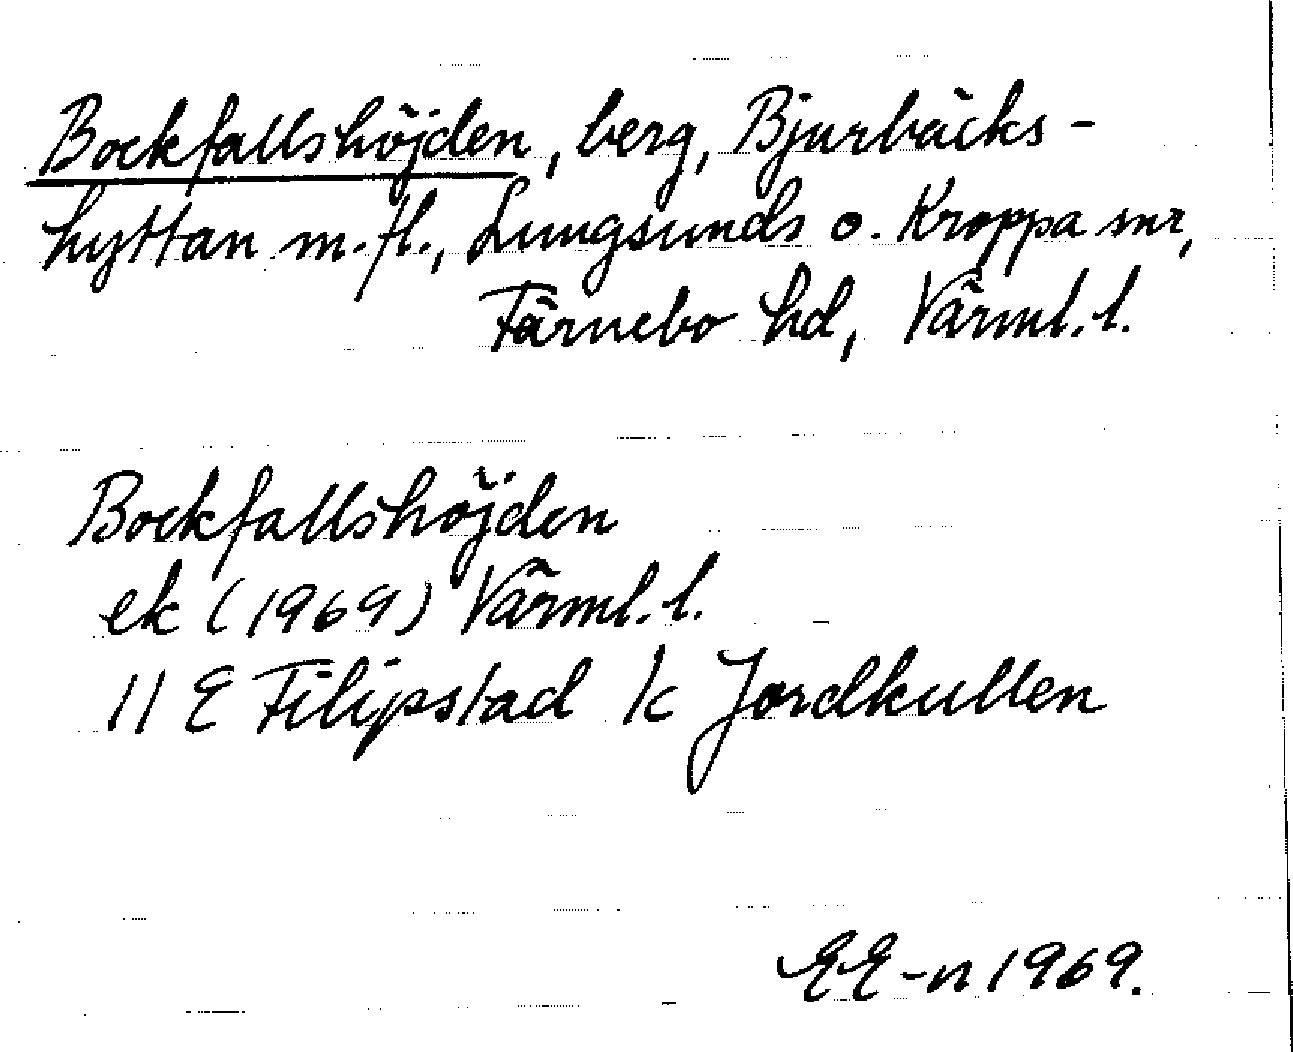 Bockfallshöjden, berg, Bjurbäcks-
hyttan m.fl., Lungsunds o. Kroppa snr,
Färnebo hd, Värml. l.
Bockfallshöjden
ek (1969) Värml. l.
11 E Filipstad /c Jordkullen
EE-n 1969.